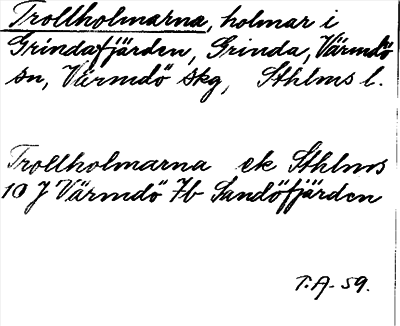 Trollholmarna, holmar i
Grindafjärden, Grinda, Värmdö
sn, Värmdö skg, Sthlms l.
Trollholmarna ek Sthlms
10 J Värmdö 7b Sandöfjärden
T.A-59.